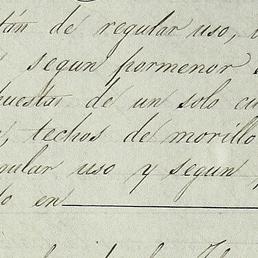 tán de regular uso,
segun pormenor
puestas de un solo cu
techos de morillo
gular uso y segun
do en